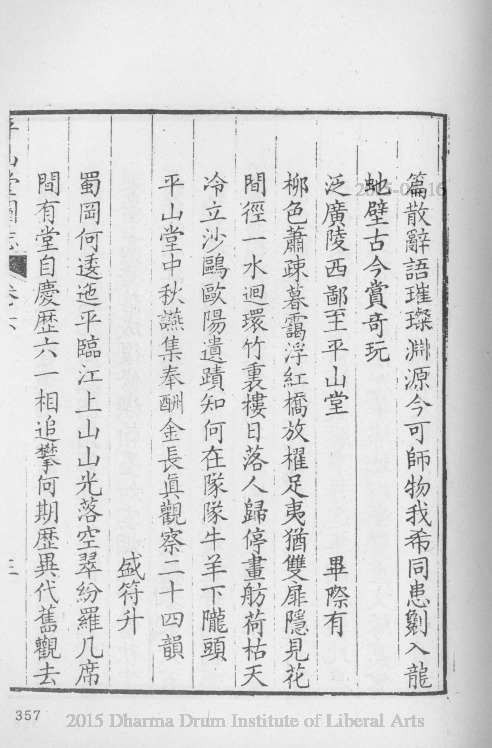 篇散辭語璀璨淵源今可師物我希同患劖入龍
虵壁古今賞奇玩
泛廣陵西鄙至平山堂 畢際有
柳色蕭疎暮靄浮紅橋放櫂足夷猶雙扉隱見花
間徑一水迴環竹裏樓日落人歸停畫舫荷枯天
冷立沙鷗歐陽遺蹟知何在隊隊牛羊下隴頭
平山堂中秋讌集奉酬金長真觀察二十四韻
盛符升
蜀岡何逶迤平臨江上山山光落空翠紛羅几席
間有堂自慶歷六一相追攀何期歷異代舊觀去
平山堂圖志 卷六 三
357
2015 Dharma Drum Institute of Liberal Arts